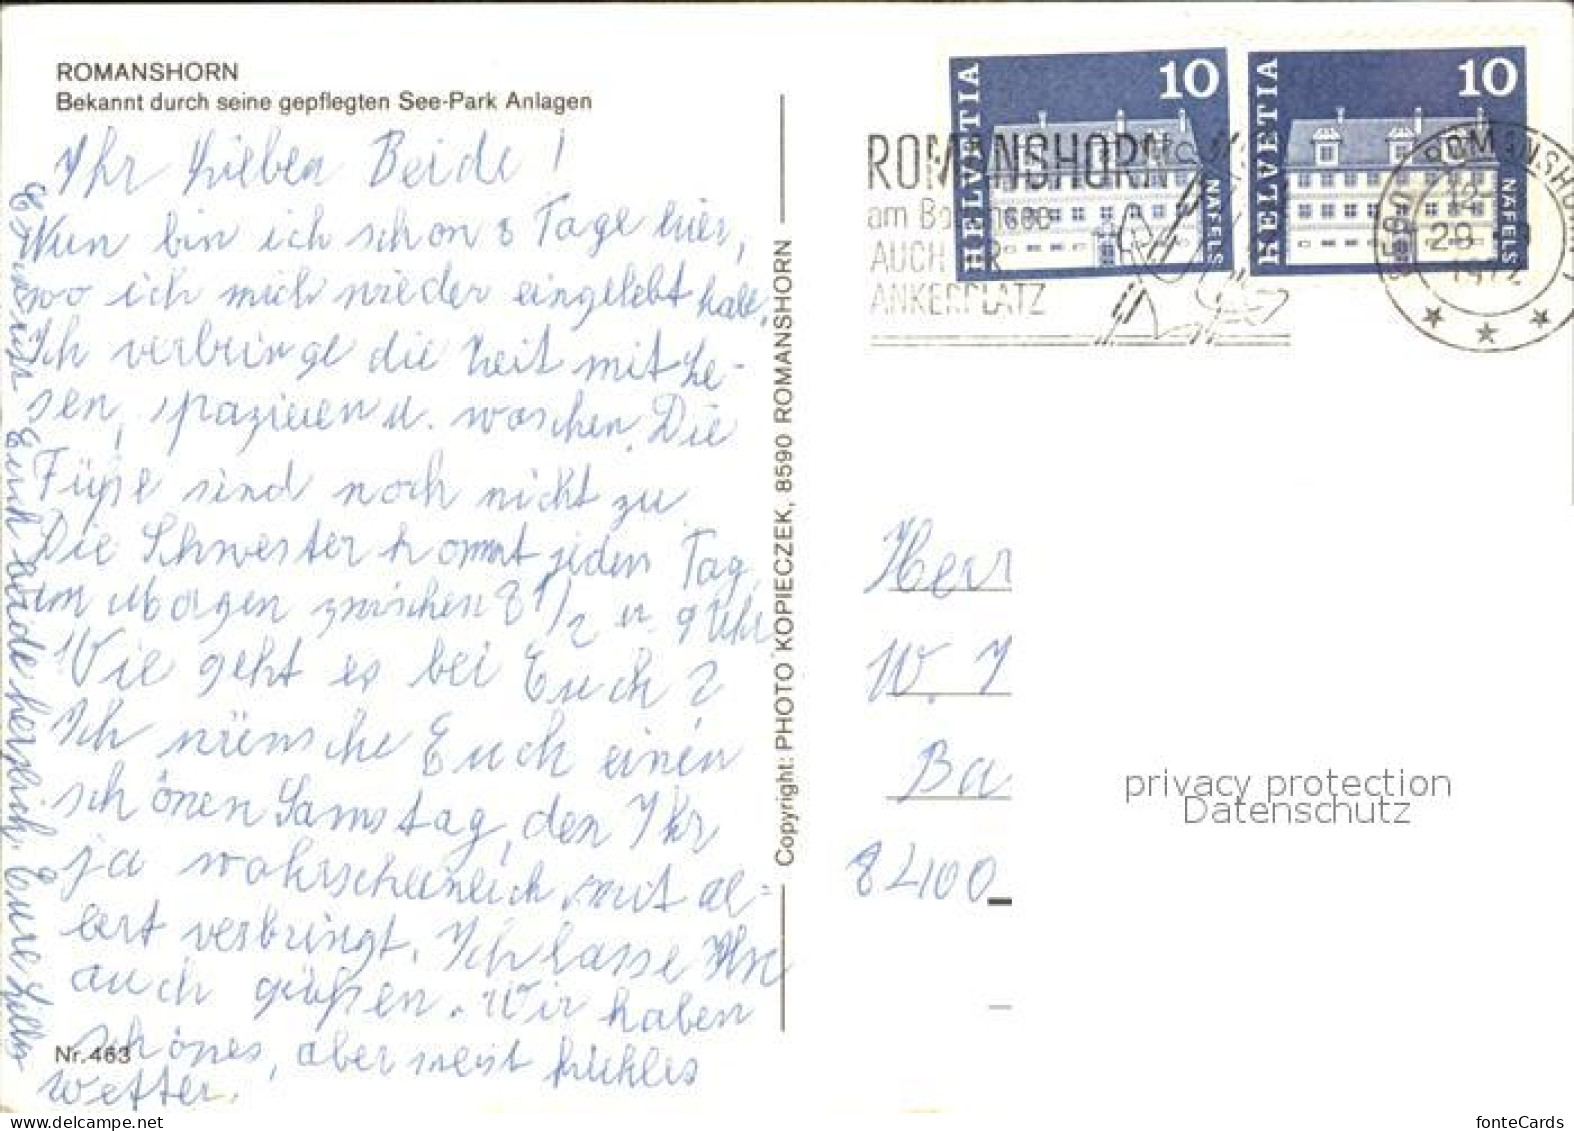 ROMANSHORN
Bekannt durch seine gepflegten See-Park Anlagen
Ihr Lieben Beide!
Nun bin ich schon 8 Tage hier,
wo ich mich wieder eingelebt habe.
Ich verbringe die Zeit mit Le-
sen, spazieren u. waschen. Die
Füße sind noch nicht zu
Die Schwester kommt jeden Tag,
am Morgen zwischen 8 1/2 u. 9 Uhr
Wie geht es bei Euch?
Ich wünsche Euch einen
schönen Samstag, den Ihr
ja wahrscheinlich mit al-
bert verbringt. Ich lasse Ihn
auch grüßen. Wir haben
schönes, aber meist kühles
Wetter.
Euch beide herzlich. Eure
Nr. 463
Copyright: PHOTO KOPIECZEK, 8590 ROMANSHORN
HELVETIA 10 NÄFELS
HELVETIA 10 NÄFELS
ROMANSHORN
am Bodensee
AUCH IHR
ANKERPLATZ
8590 ROMANSHORN 1
12
29
1972
Herr
W. I
Ba
8400
privacy protection
Datenschutz
fonteCards